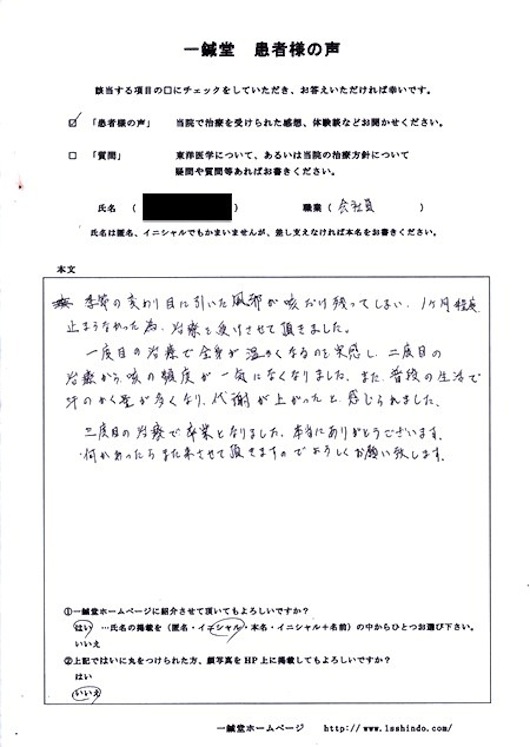 一鍼堂 患者様の声
該当する項目の□にチェックをしていただき、お答えいただければ幸いです。
☑ 「患者様の声」 当院で治療を受けられた感想、体験談などお聞かせください。
□ 「質問」 東洋医学について、あるいは当院の治療方針について
疑問や質問等あればお書きください。
氏名 ( ) 職業 ( 会社員 )
氏名は匿名、イニシャルでもかまいませんが、差し支えなければ本名をお書きください。
本文
季節の変わり目に引いた風邪が咳だけ残ってしまい、1ヶ月程度
止まらなかった為、治療を受けさせて頂きました。
一度目の治療で全身が温かくなるのを実感し、二度目の
治療から、咳の頻度が一気になくなりました。また、普段の生活で
汗のかく量が多くなり、代謝が上がったと感じられました。
三度目の治療で卒業となりました。本当にありがとうございます。
何かあったらまた来させて頂きますのでよろしくお願い致します。
①一鍼堂ホームページに紹介させて頂いてもよろしいですか？
はい …氏名の掲載を（匿名・イニシャル・本名・イニシャル＋名前）の中からひとつお選び下さい。
いいえ
②上記ではいに丸をつけられた方、顔写真をHP上に掲載してもよろしいですか？
はい
いいえ
一鍼堂ホームページ http://www.1sshindo.com/